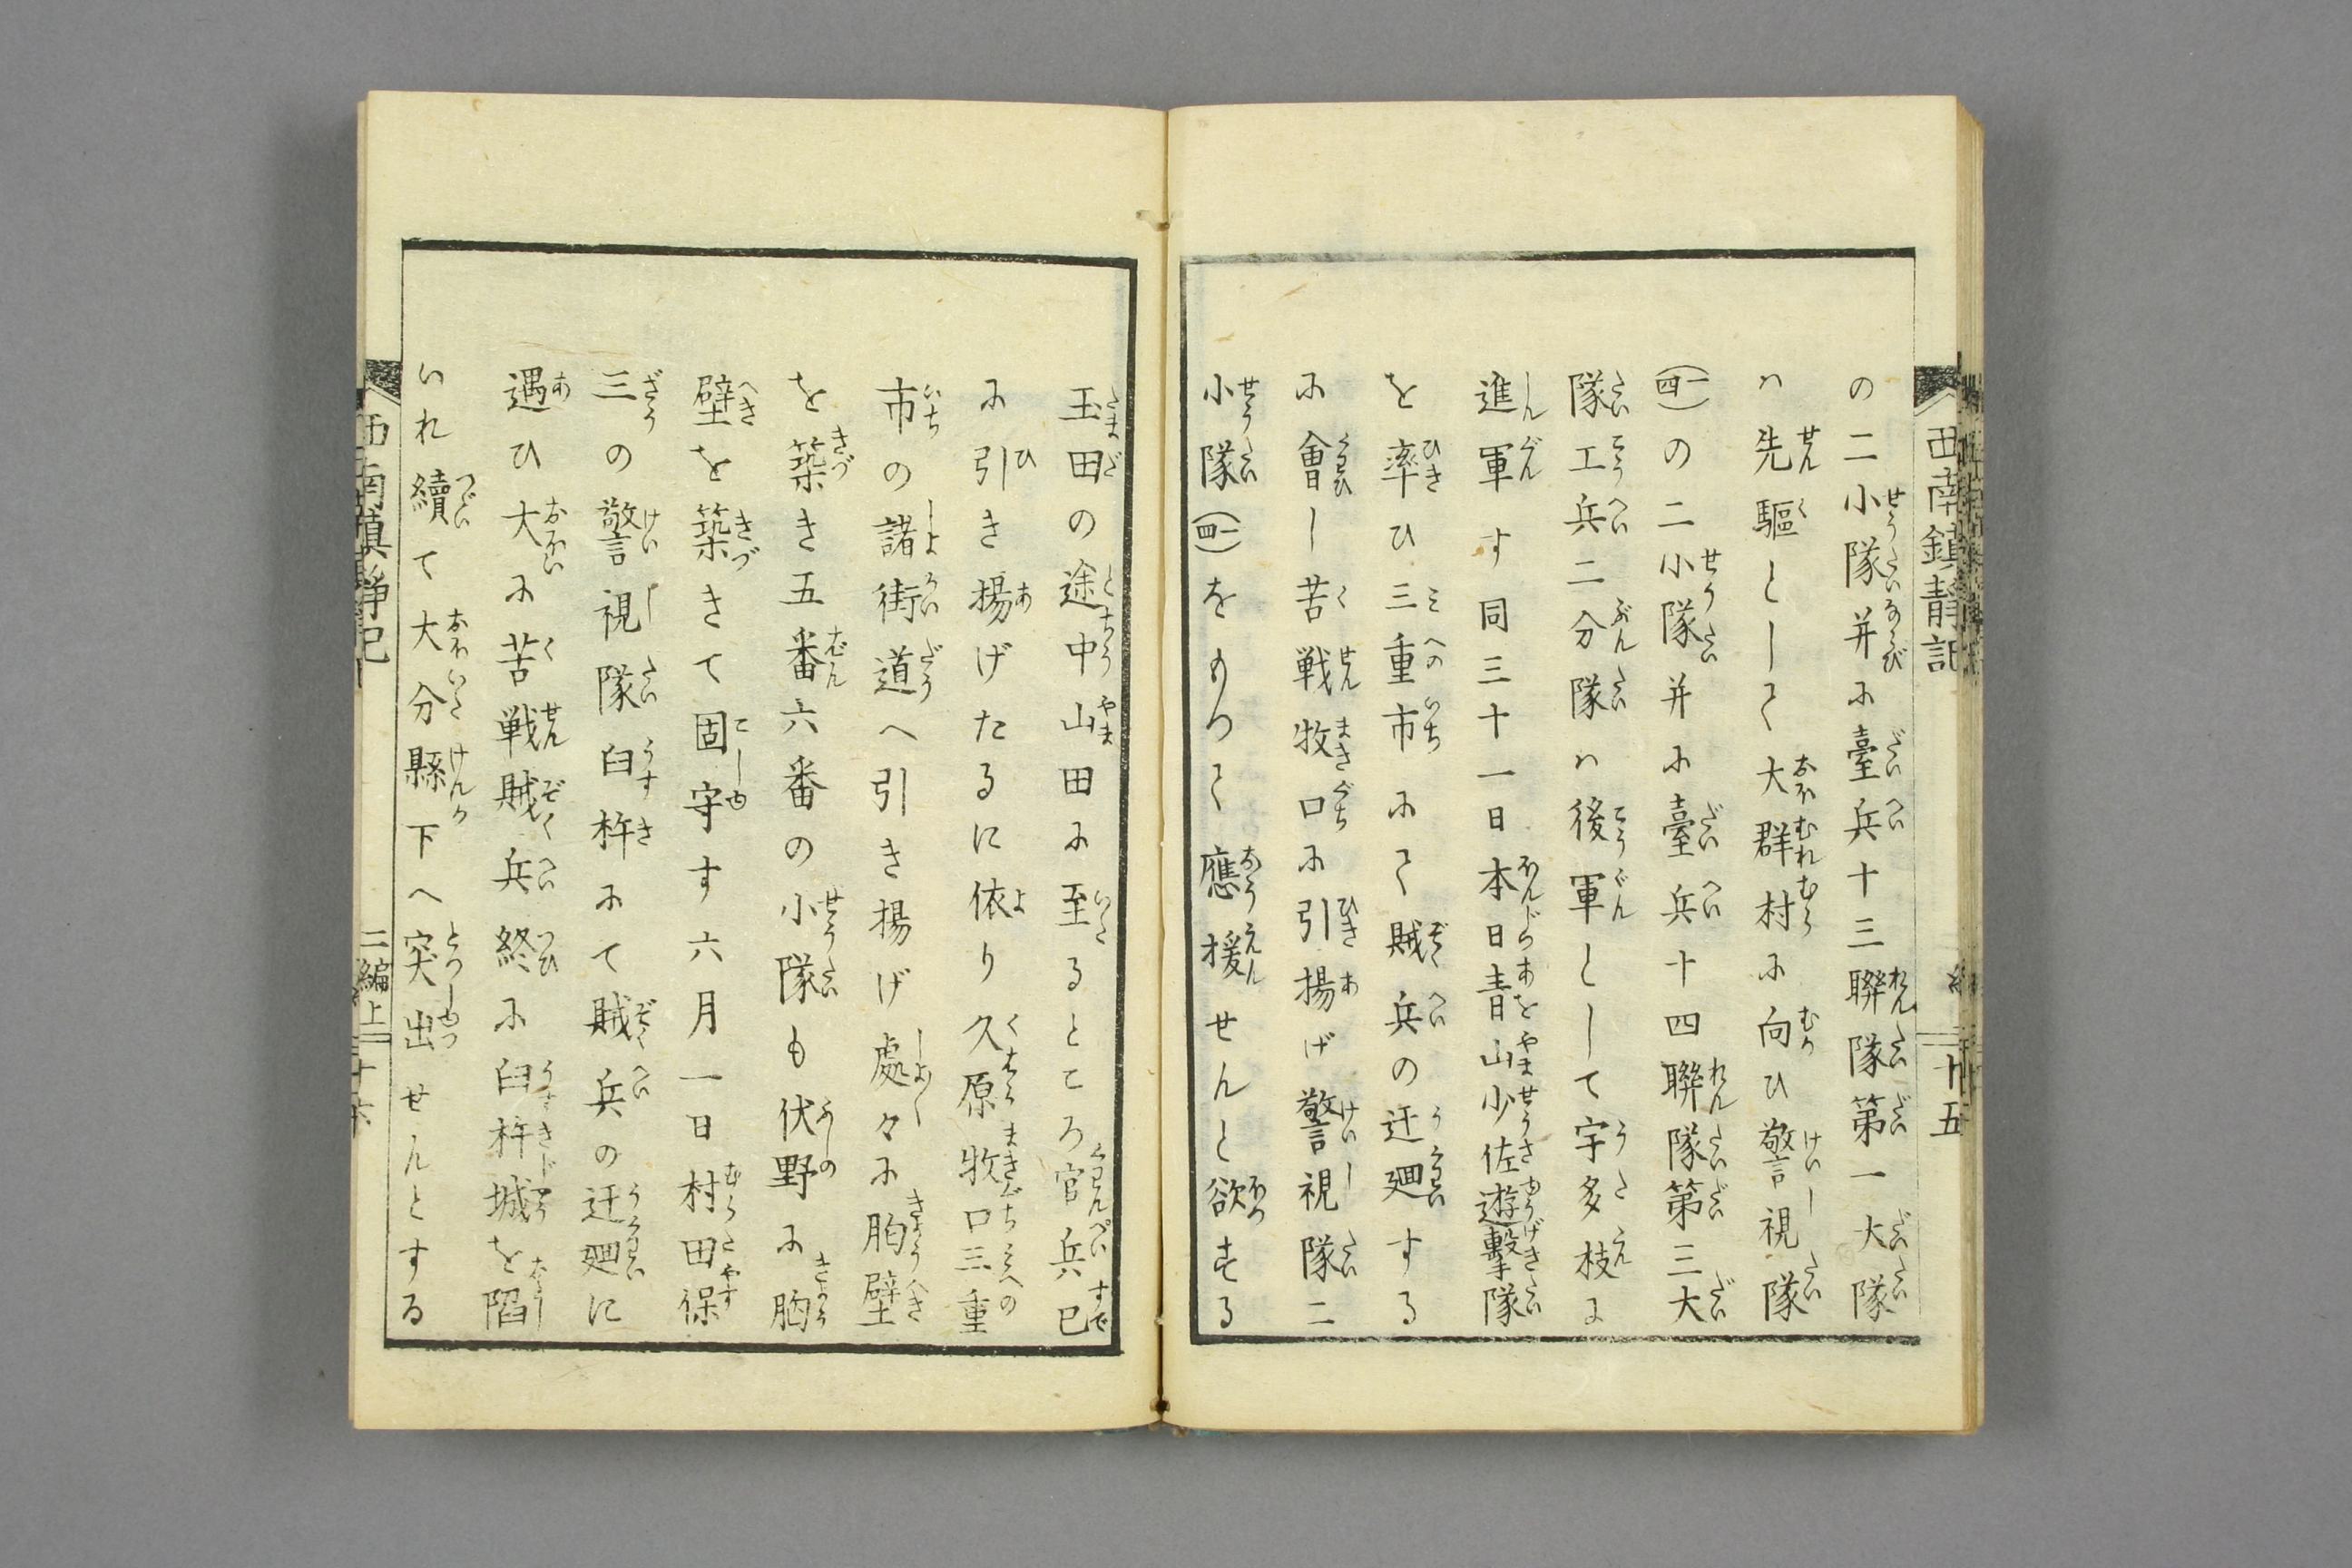 西南鎮靜記
十五
の二小隊并に臺兵十三聯隊第一大隊
ハ先驅として大群村に向ひ警視隊
(一四)の二小隊并に臺兵十四聯隊第三大
隊工兵二分隊ハ後軍として宇多枝に
進軍す同三十一日本日青山少佐遊擊隊
を率ひ三重市にて賊兵の迂廻する
に會し苦戦牧口に引揚げ警視隊二
小隊(一四)をもつて應援せんと欲する
玉田の途中山田に至るところ官兵已
に引き揚げたるに依り久原牧口三重
市の諸街道へ引き揚げ處々に胸壁
を築き五番六番の小隊も伏野に胸
壁を築きて固守す六月一日村田保
三の警視隊臼杵にて賊兵の迂廻に
遇ひ大に苦戦賊兵終に臼杵城を陷
いれ續て大分縣下へ突出せんとする
西南鎮靜記
二編上
十六